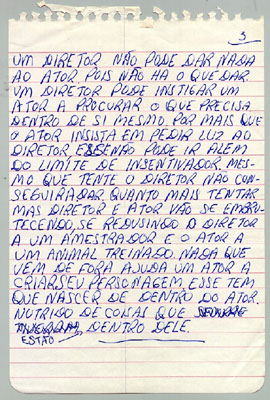 3
UM DIRETOR NÃO PODE DAR NADA
AO ATOR POIS NÃO HA O QUE DAR
UM DIRETOR PODE INSTIGAR UM
ATOR A PROCURAR O QUE PRECISA
DENTRO DE SI MESMO. POR MAIS QUE
O ATOR INSISTA EM PEDIR LUZ AO
DIRETOR ESSE NÃO PODE IR ALÉM
DO LIMITE DE INSENTIVADOR. MES-
MO QUE TENTE O DIRETOR NÃO CON-
SEGUIRA DAR. QUANTO MAIS TENTAR
MAS DIRETOR E ATOR VÃO SE EMBRU-
TECENDO, SE REDUSINDO O DIRETOR
A UM AMESTRADOR E O ATOR A
UM ANIMAL TREINADO. NADA QUE
VEM DE FORA AJUDA UM ATOR A
CRIAR SEU PERSONAGEM. ESSE TEM
QUE NASCER DE DENTRO DO ATOR.
NUTRIDO DE COISAS QUE
ESTÃO DENTRO DELE.